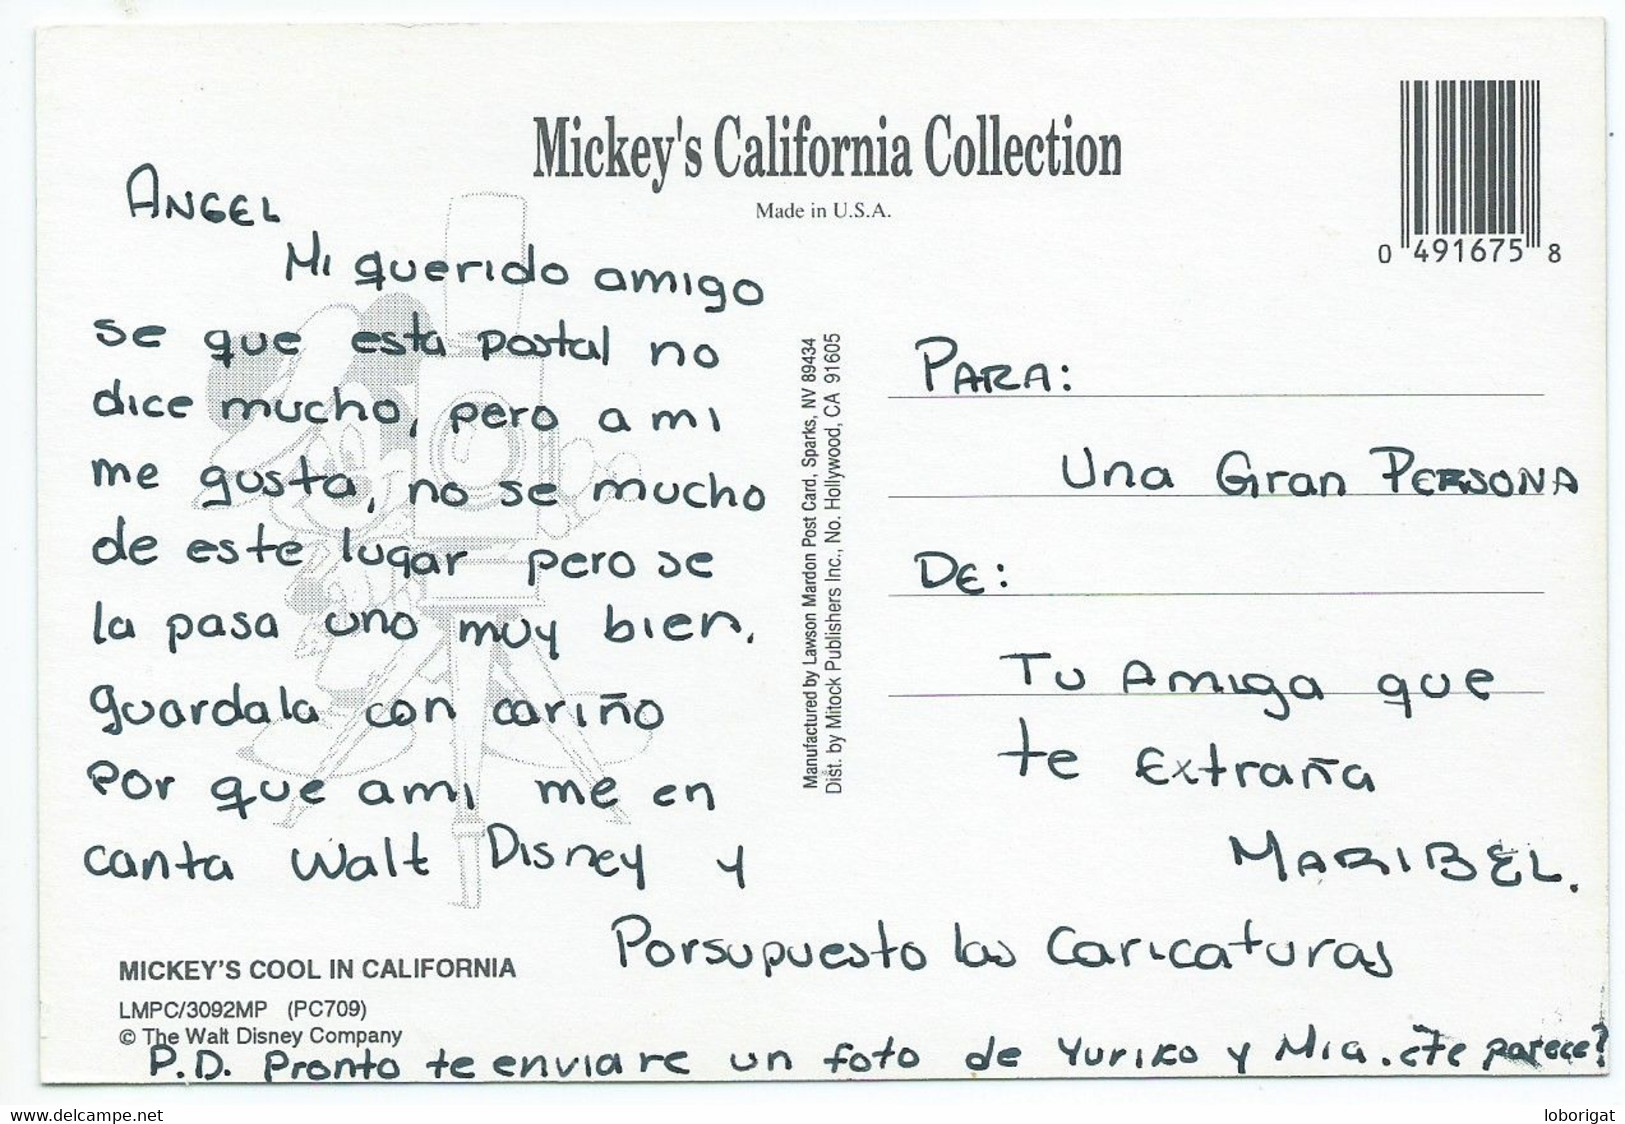 Mickey's California Collection
Made in U.S.A.
0 491675 8
ANGEL
Mi querido amigo
se que esta postal no
dice mucho, pero a mi
me gusta, no se mucho
de este lugar pero se
la pasa uno muy bien,
guardala con cariño
Por que ami me en
canta Walt Disney y
Porsupuesto las Caricaturas
P.D. Pronto te enviare un foto de Yuriko y Mia. ¿Te parece?
MICKEY'S COOL IN CALIFORNIA
LMPC/3092MP (PC709)
© The Walt Disney Company
Manufactured by Lawson Mardon Post Card, Sparks, NV 89434
Dist. by Mitock Publishers Inc., No. Hollywood, CA 91605
PARA:
Una Gran PERSONA
DE:
Tu Amiga que
te Extraña
MARIBEL.
www.delcampe.net
loborigat